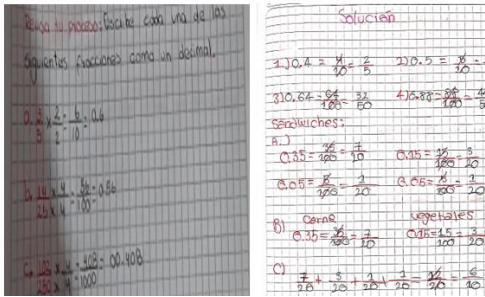 Revisa tu proceso: Escribe cada una de las
siguientes fracciones como un decimal.
a. 3/5 x 2/2 = 6/10 = 0.6
b. 14/25 x 4/4 = 56/100 = 0.56
c. 102/250 x 4/4 = 408/1000 = 00.408
Solución
1.) 0.4 = 4/10 = 2/5 2) 0.5 =
3) 0.64 = 64/100 = 32/50 4) 0.88 = 88/100 =
Sandwiches:
A.)
0.35 = 35/100 = 7/20 0.15 = 15/100 = 3/20
0.05 = 5/100 = 1/20 0.05 = 5/100 = 1/20
B) carne vegetales
0.35 = 35/100 = 7/20 0.15 = 15/100 = 3/20
C)
7/20 + 3/20 + 1/20 + 1/20 = 12/20 = 6/10